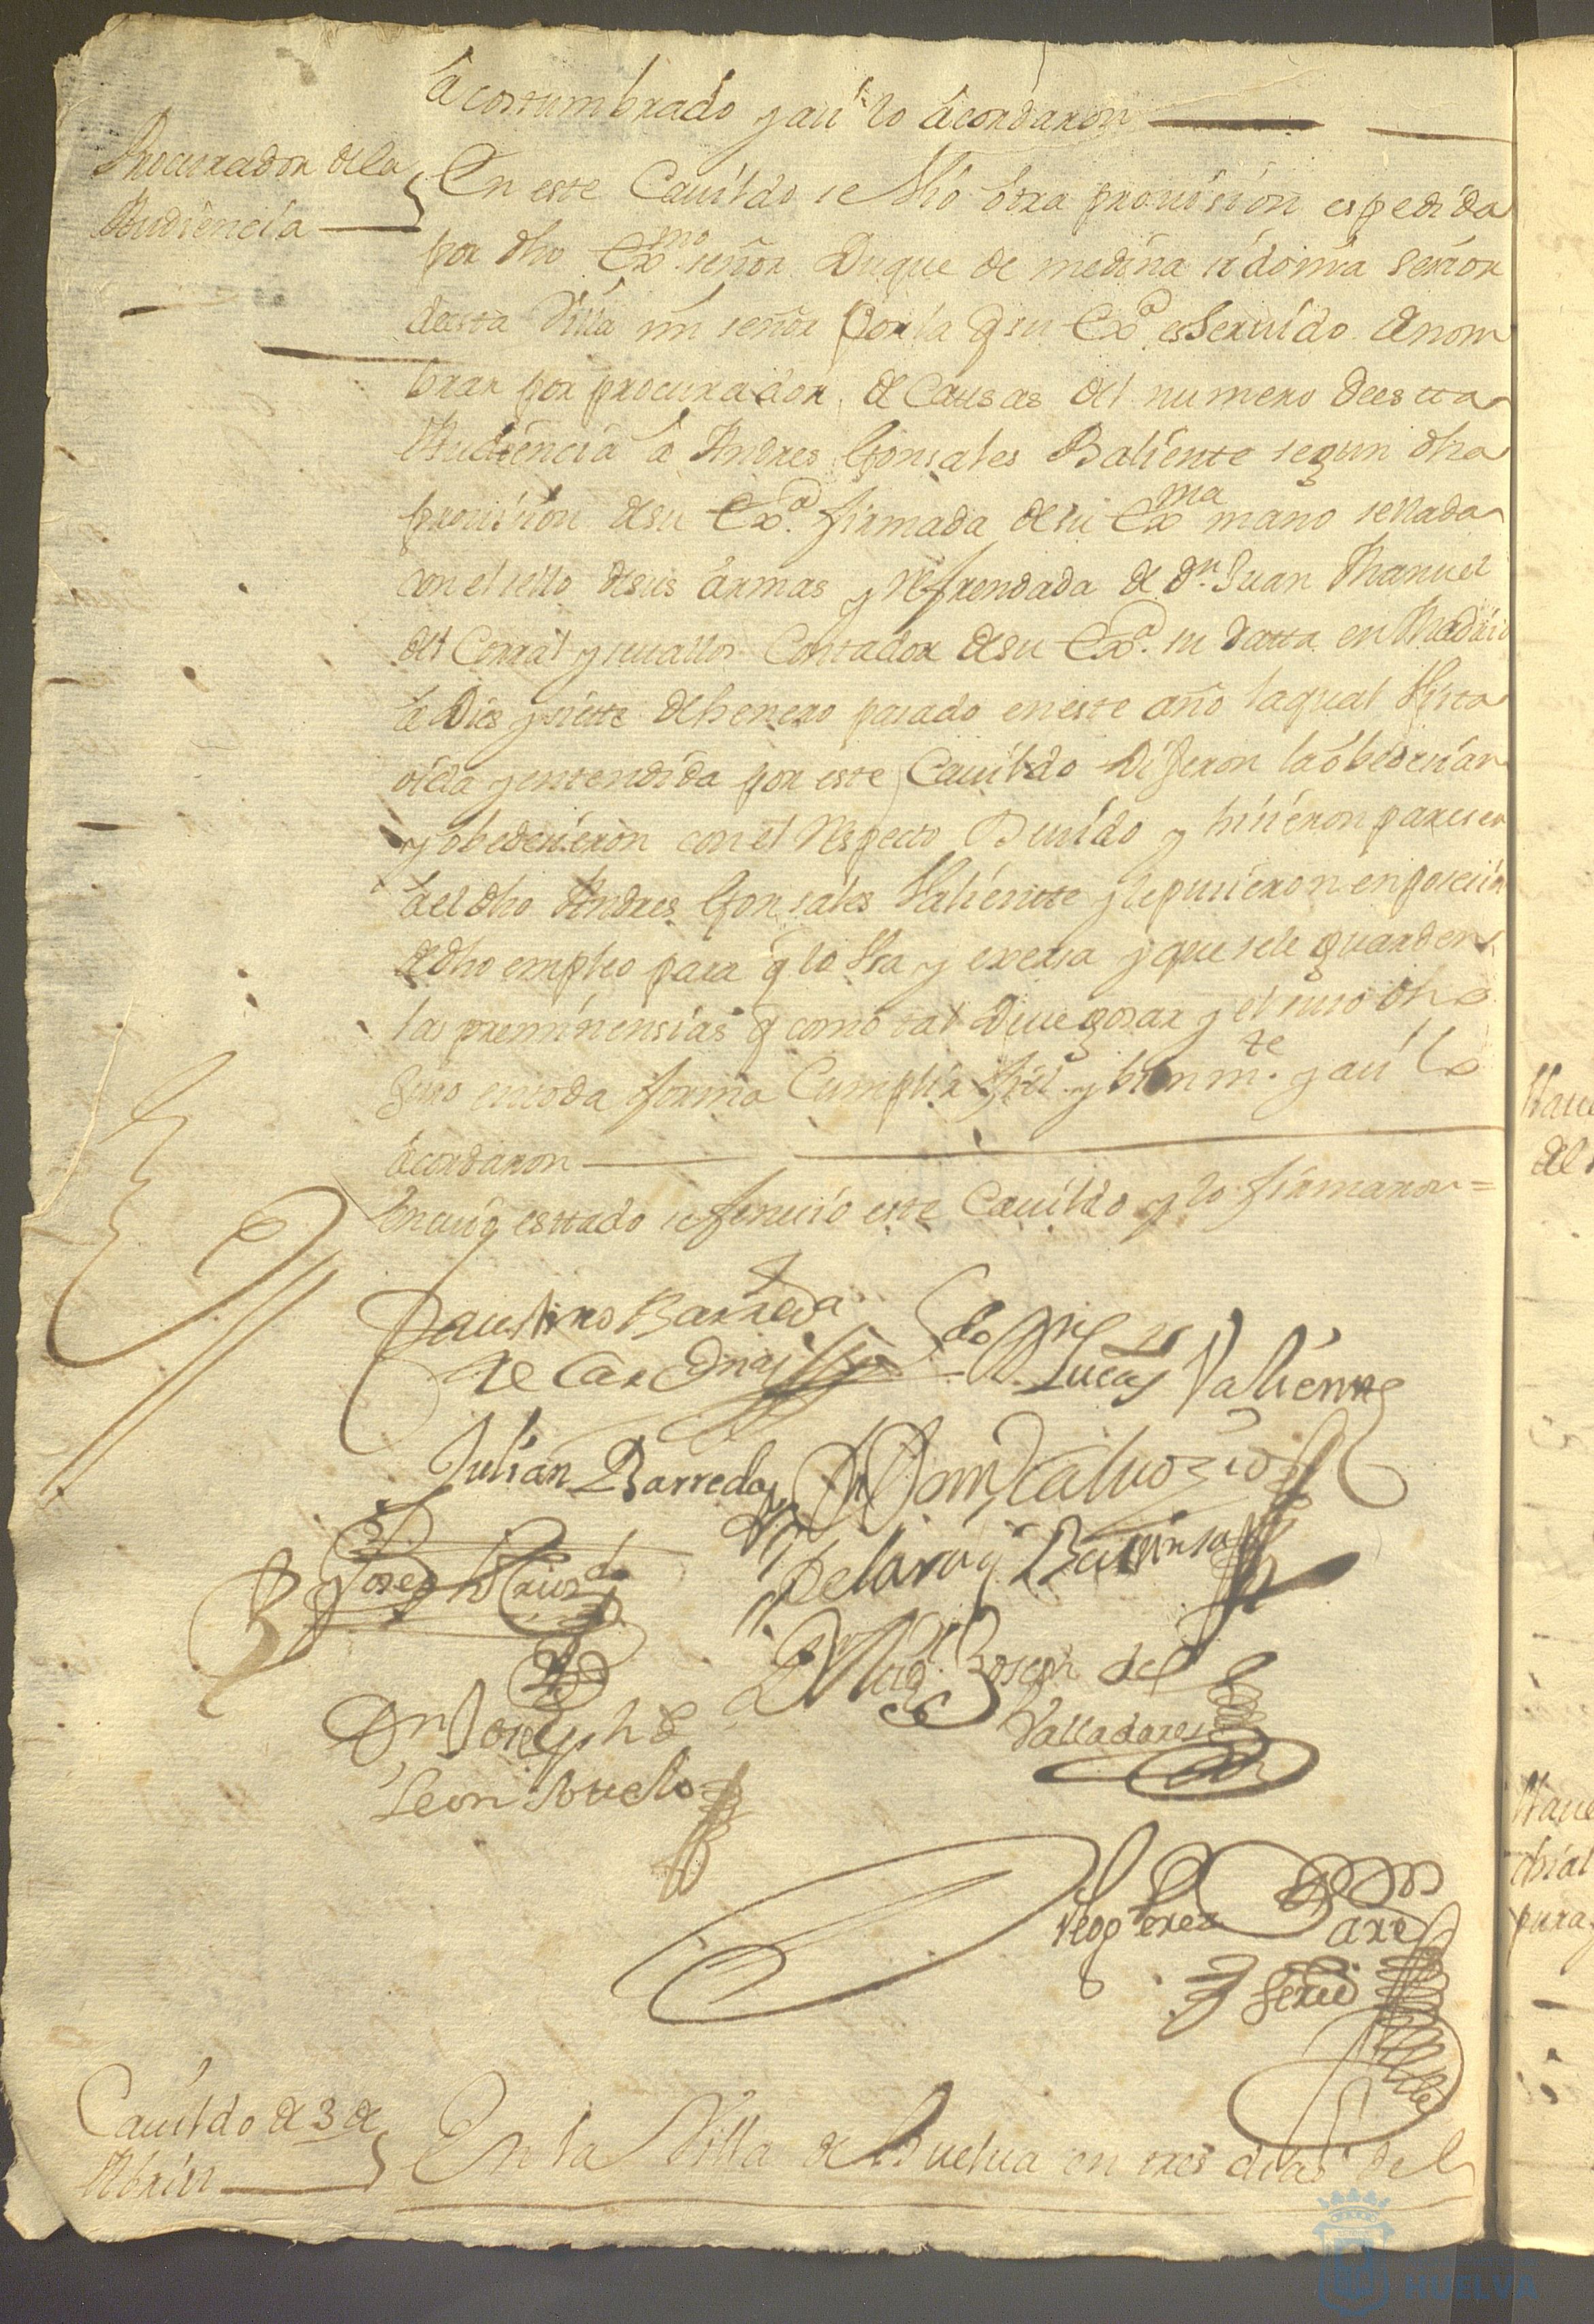 acostumbrado y así lo acordaron
Procurador de la
Audiencia
En este Cauildo se vio otra prouision espedida
por dho Exmo señor Duque de medina sidonia señor
de esta Villa mi señor Por la q su Exa es Seruido de nom
brar por procurador de Causas del numero de estta
Audiencia a Andres Gonsales Baliente segun dha
prouision de su Exa. firmada de su Exma mano sellada
con el sello de sus armas y refrendada de Dn. Juan Manuel
del Corral y Contador de su Exa. su datta en Madrid
a Dies y siette de henero pasado en este año la qual Vista
oida y entendida por este Cauildo Dijeron la obedecian
y obedecieron con el Respecto Deuido y hisieron pareser
a el dho Andres Gonsales Valientte y le pusieron en posecion
de dho empleo para q lo Vsa y exersa y que se le guarden
las preminensias q como tal Deue gosar y el suso dho
Juro en toda forma Cumplir fiel y bien mte. y así lo
acordaron
En cuio esttado se fenecio este Cauildo y lo firmaron =
Faustino Barreda
de Cardenas
Ldo
Lucas Valiente
Julian Barreda
Dn Domingo Caluo
de la
Joseph
Dn Joseph de
Leon
Joseph del
Valladares
Diego Perez
Cauildo de 3 de
Abril
En la Villa de Huelua en tres dias del
Haue
del
Haue
pura
HUELVA